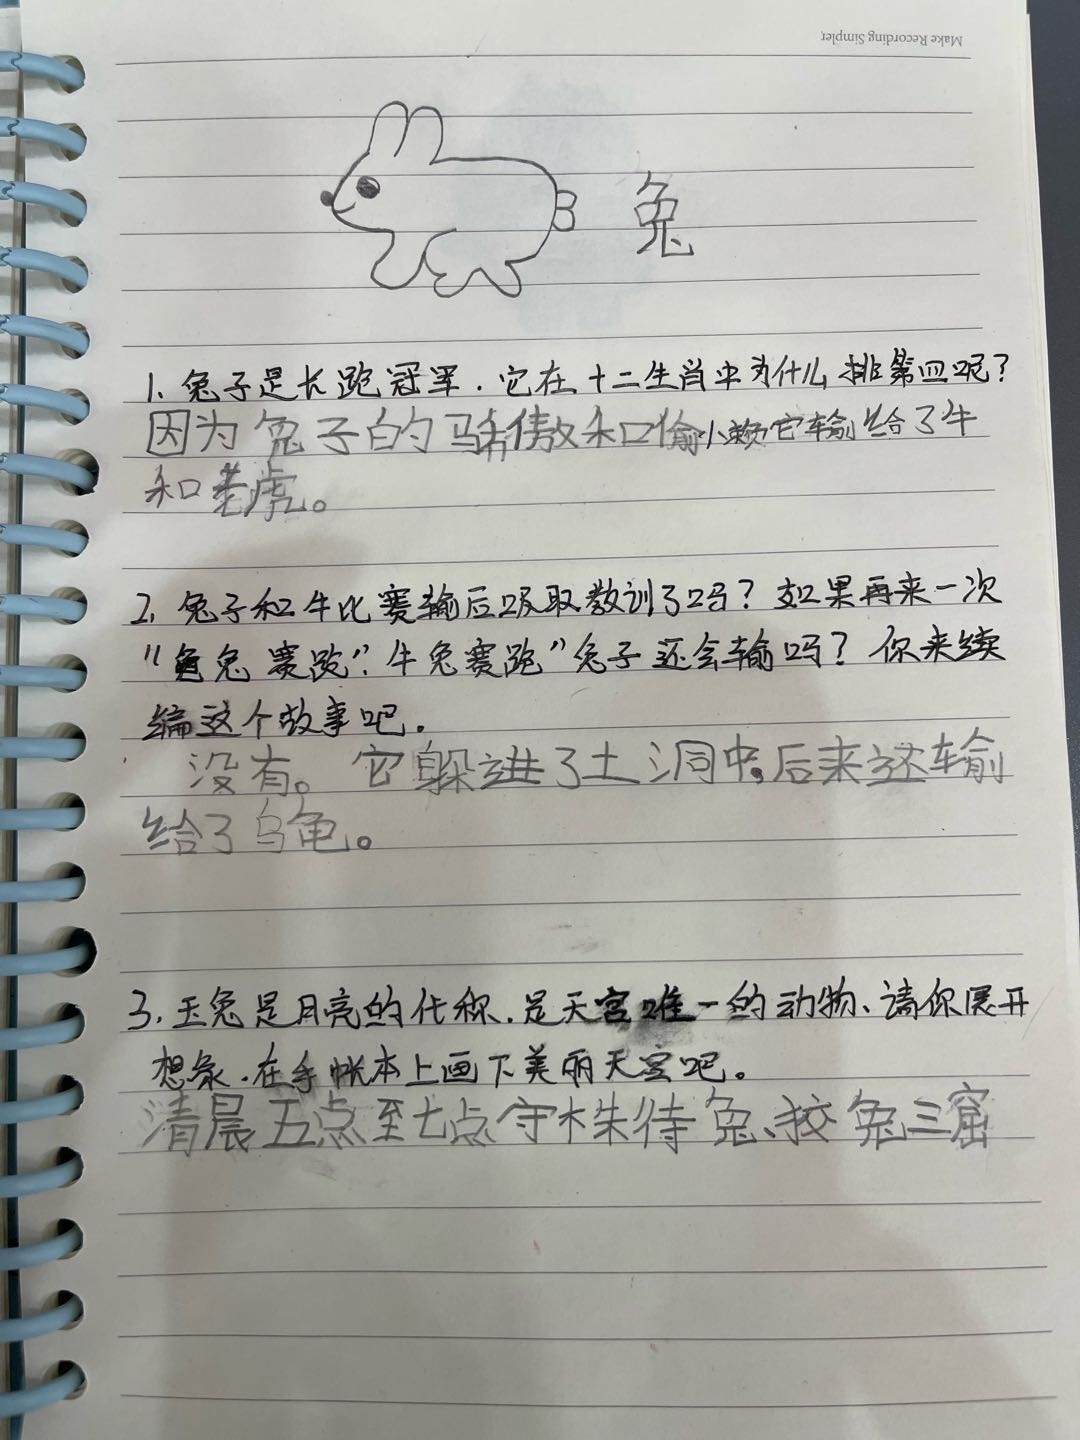 Make Recording Simpler.
兔
1、兔子是长跑冠军.它在十二生肖中为什么排第四呢?
因为兔子的骄傲和偷小懒它输给了牛
和老虎。
2、兔子和牛比赛输后吸取教训了吗?如果再来一次
“龟兔赛跑”.牛兔赛跑”兔子还会输吗?你来续
编这个故事吧.
没有。它躲进了土洞中。后来还输
给了乌龟。
3、玉兔是月亮的代称.是天宫唯一的动物、请你展开
想象.在手帐本上画下美丽天宫吧。
清晨五点至七点守株待兔、狡兔三窟